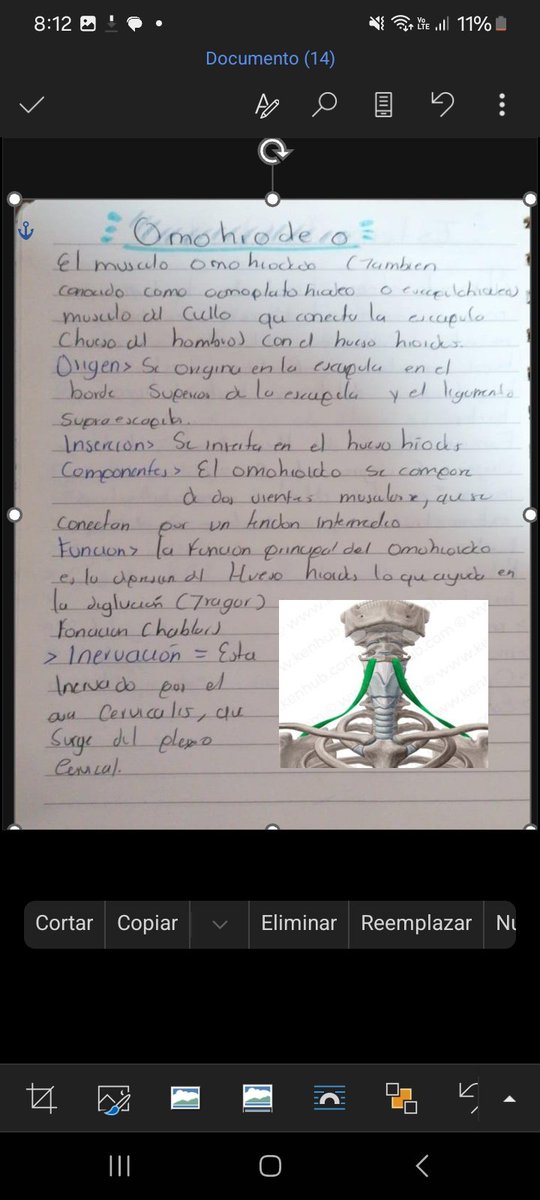 8:12
Vo LTE
11%
Documento (14)
Omohiodeo
El musculo omohiodeo (Tambien
conocido como omoplato hioideo o
musculo del Cullo que conecta la escapula
(hueso del hombro) con el hueso hioides.
Origen> Se origina en la escapula en el
borde Superior de la escapula y el ligamento
Supraescapular.
Insercion> Se inserta en el hueso hiodes
Componentes> El omohioideo se compone
de dos vientes musculares, que se
conectan por un tendon intermedio
Funcion> la funcion principal del omohioideo
es la depresion del Hueso hioides lo que ayuda en
la deglución (Tragar)
Fonacion (hablar)
> Inervación = Esta
Inervado por el
asa Cervicalis, que
Surge del plexo
Cervical.
Cortar
Copiar
Eliminar
Reemplazar
Nu